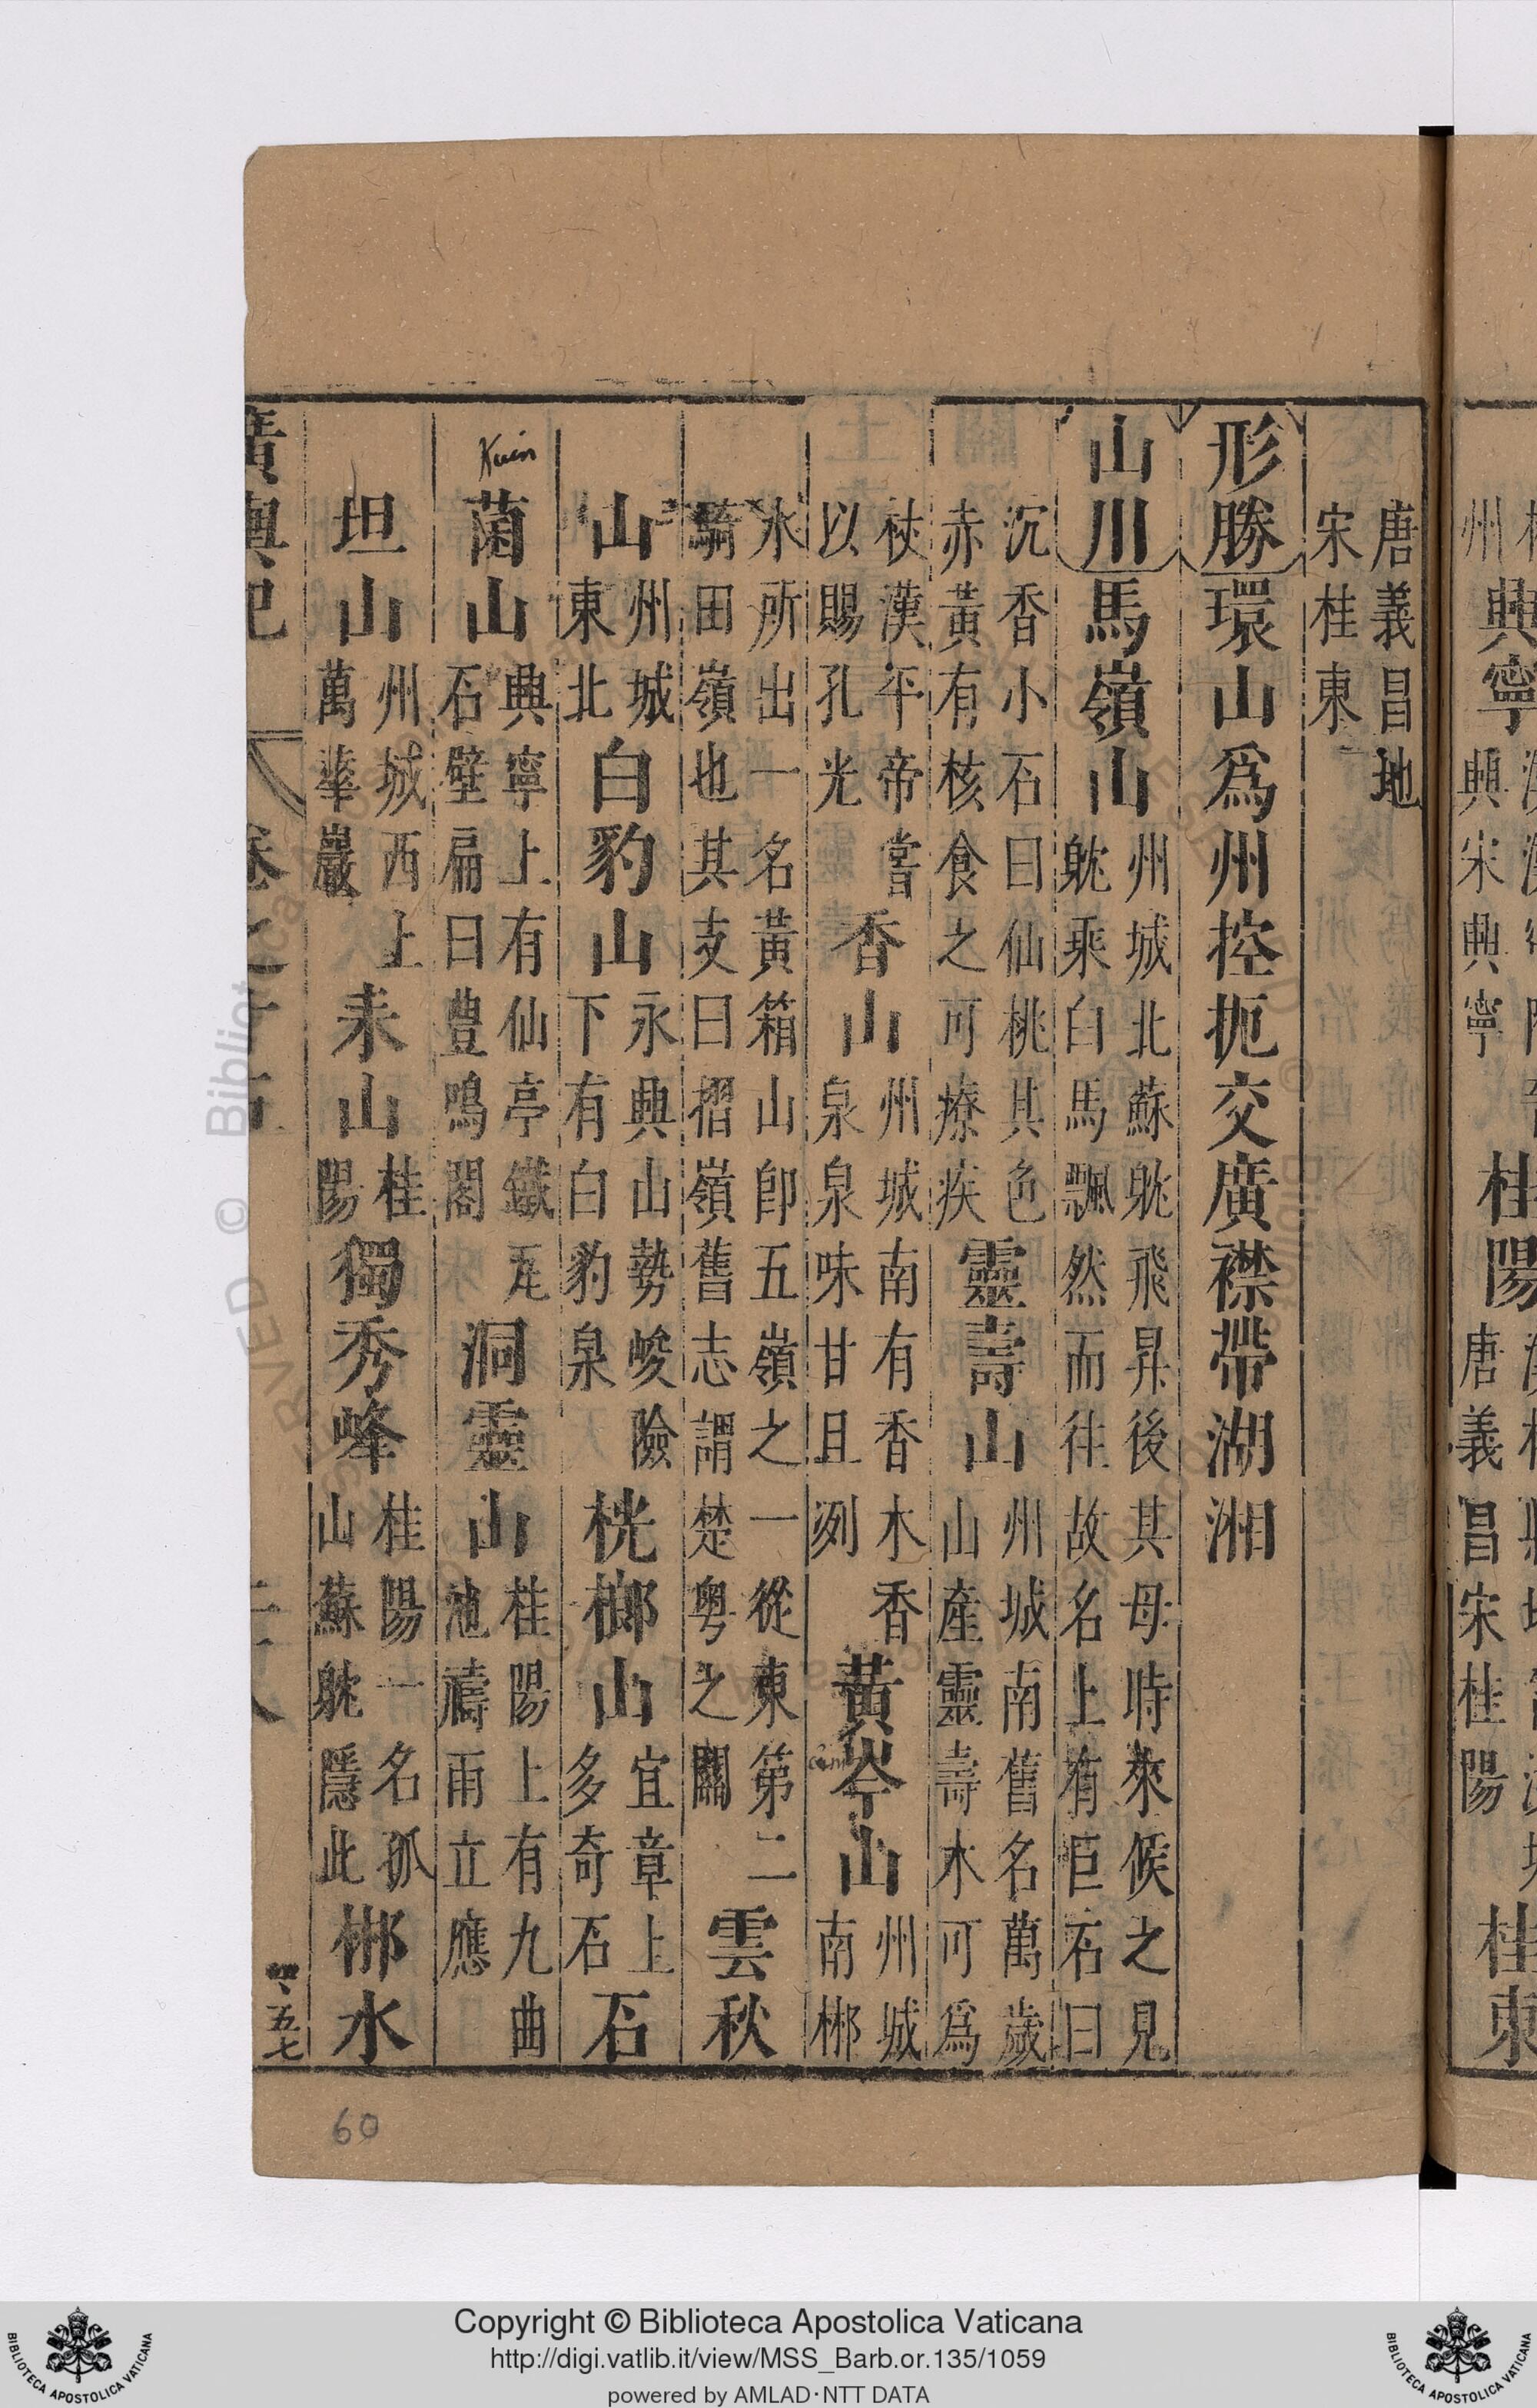 唐義昌地
宋桂東
形勝環山爲州控扼交廣襟帶湖湘
山川馬嶺山州城北蘇躭飛昇後其母時來候之見
躭乘白馬飄然而往故名上有巨石曰
沉香小石曰仙桃其色
赤黃有核食之可療疾靈壽山州城南舊名萬歲
山產靈壽木可爲
杖漢平帝嘗
以賜孔光香山州城南有香木香
泉泉味甘且冽黃岑山州城
南郴
水所出一名黃箱山卽五嶺之一從東第二
騎田嶺也其支曰摺嶺舊志謂楚粤之關雲秋
山州城
東北白豹山永興山勢峻險
下有白豹泉桄榔山宜章上
多奇石石
Kuin
菌山興寧上有仙亭鐵瓦
石壁扁曰豊鳴閣洞靈山桂陽上有九曲
池禱雨立應
坦山州城西上
萬華巖耒山桂
陽獨秀峰桂陽一名孤
山蘇躭隱此郴水
五七
60
興寧
桂陽
唐義昌宋桂陽
Copyright © Biblioteca Apostolica Vaticana
http://digi.vatlib.it/view/MSS_Barb.or.135/1059
powered by AMLAD·NTT DATA
BIBLIOTECA APOSTOLICA VATICANA
BIBLIOTECA APOSTOLICA VATICANA